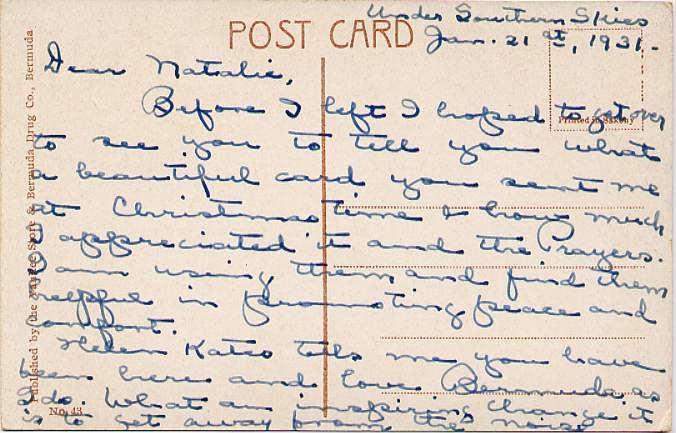 Under Southern Skies
POST CARD
Jan. 21st, 1931.
Dear Natalie,
Before I left I hoped to get over
Printed in Saxony
to see you to tell you what
a beautiful card you sent me
at Christmas time & how much
I appreciated it and the Prayers.
I am using them and find them
helpful in promoting peace and
comfort.
Helen Kates tells me you have
been here and love Bermuda, as
I do. What an inspiring change it
is to get away from the noise
Published by the Yankee Store & Bermuda Drug Co., Bermuda
No. 43